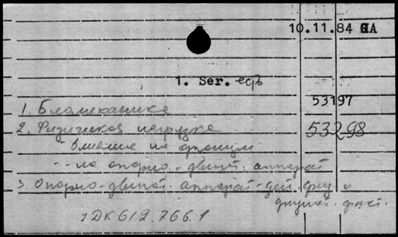 10.11.84 ВА
1. Ser. есть
53197
1. Биомеханика
2. Физическая нагрузка 53298
- влияние на функции
- - на опорно-двигат. аппарат
3. Опорно-двигат. аппарат - физ. и
других факт.
УДК 612.766.1